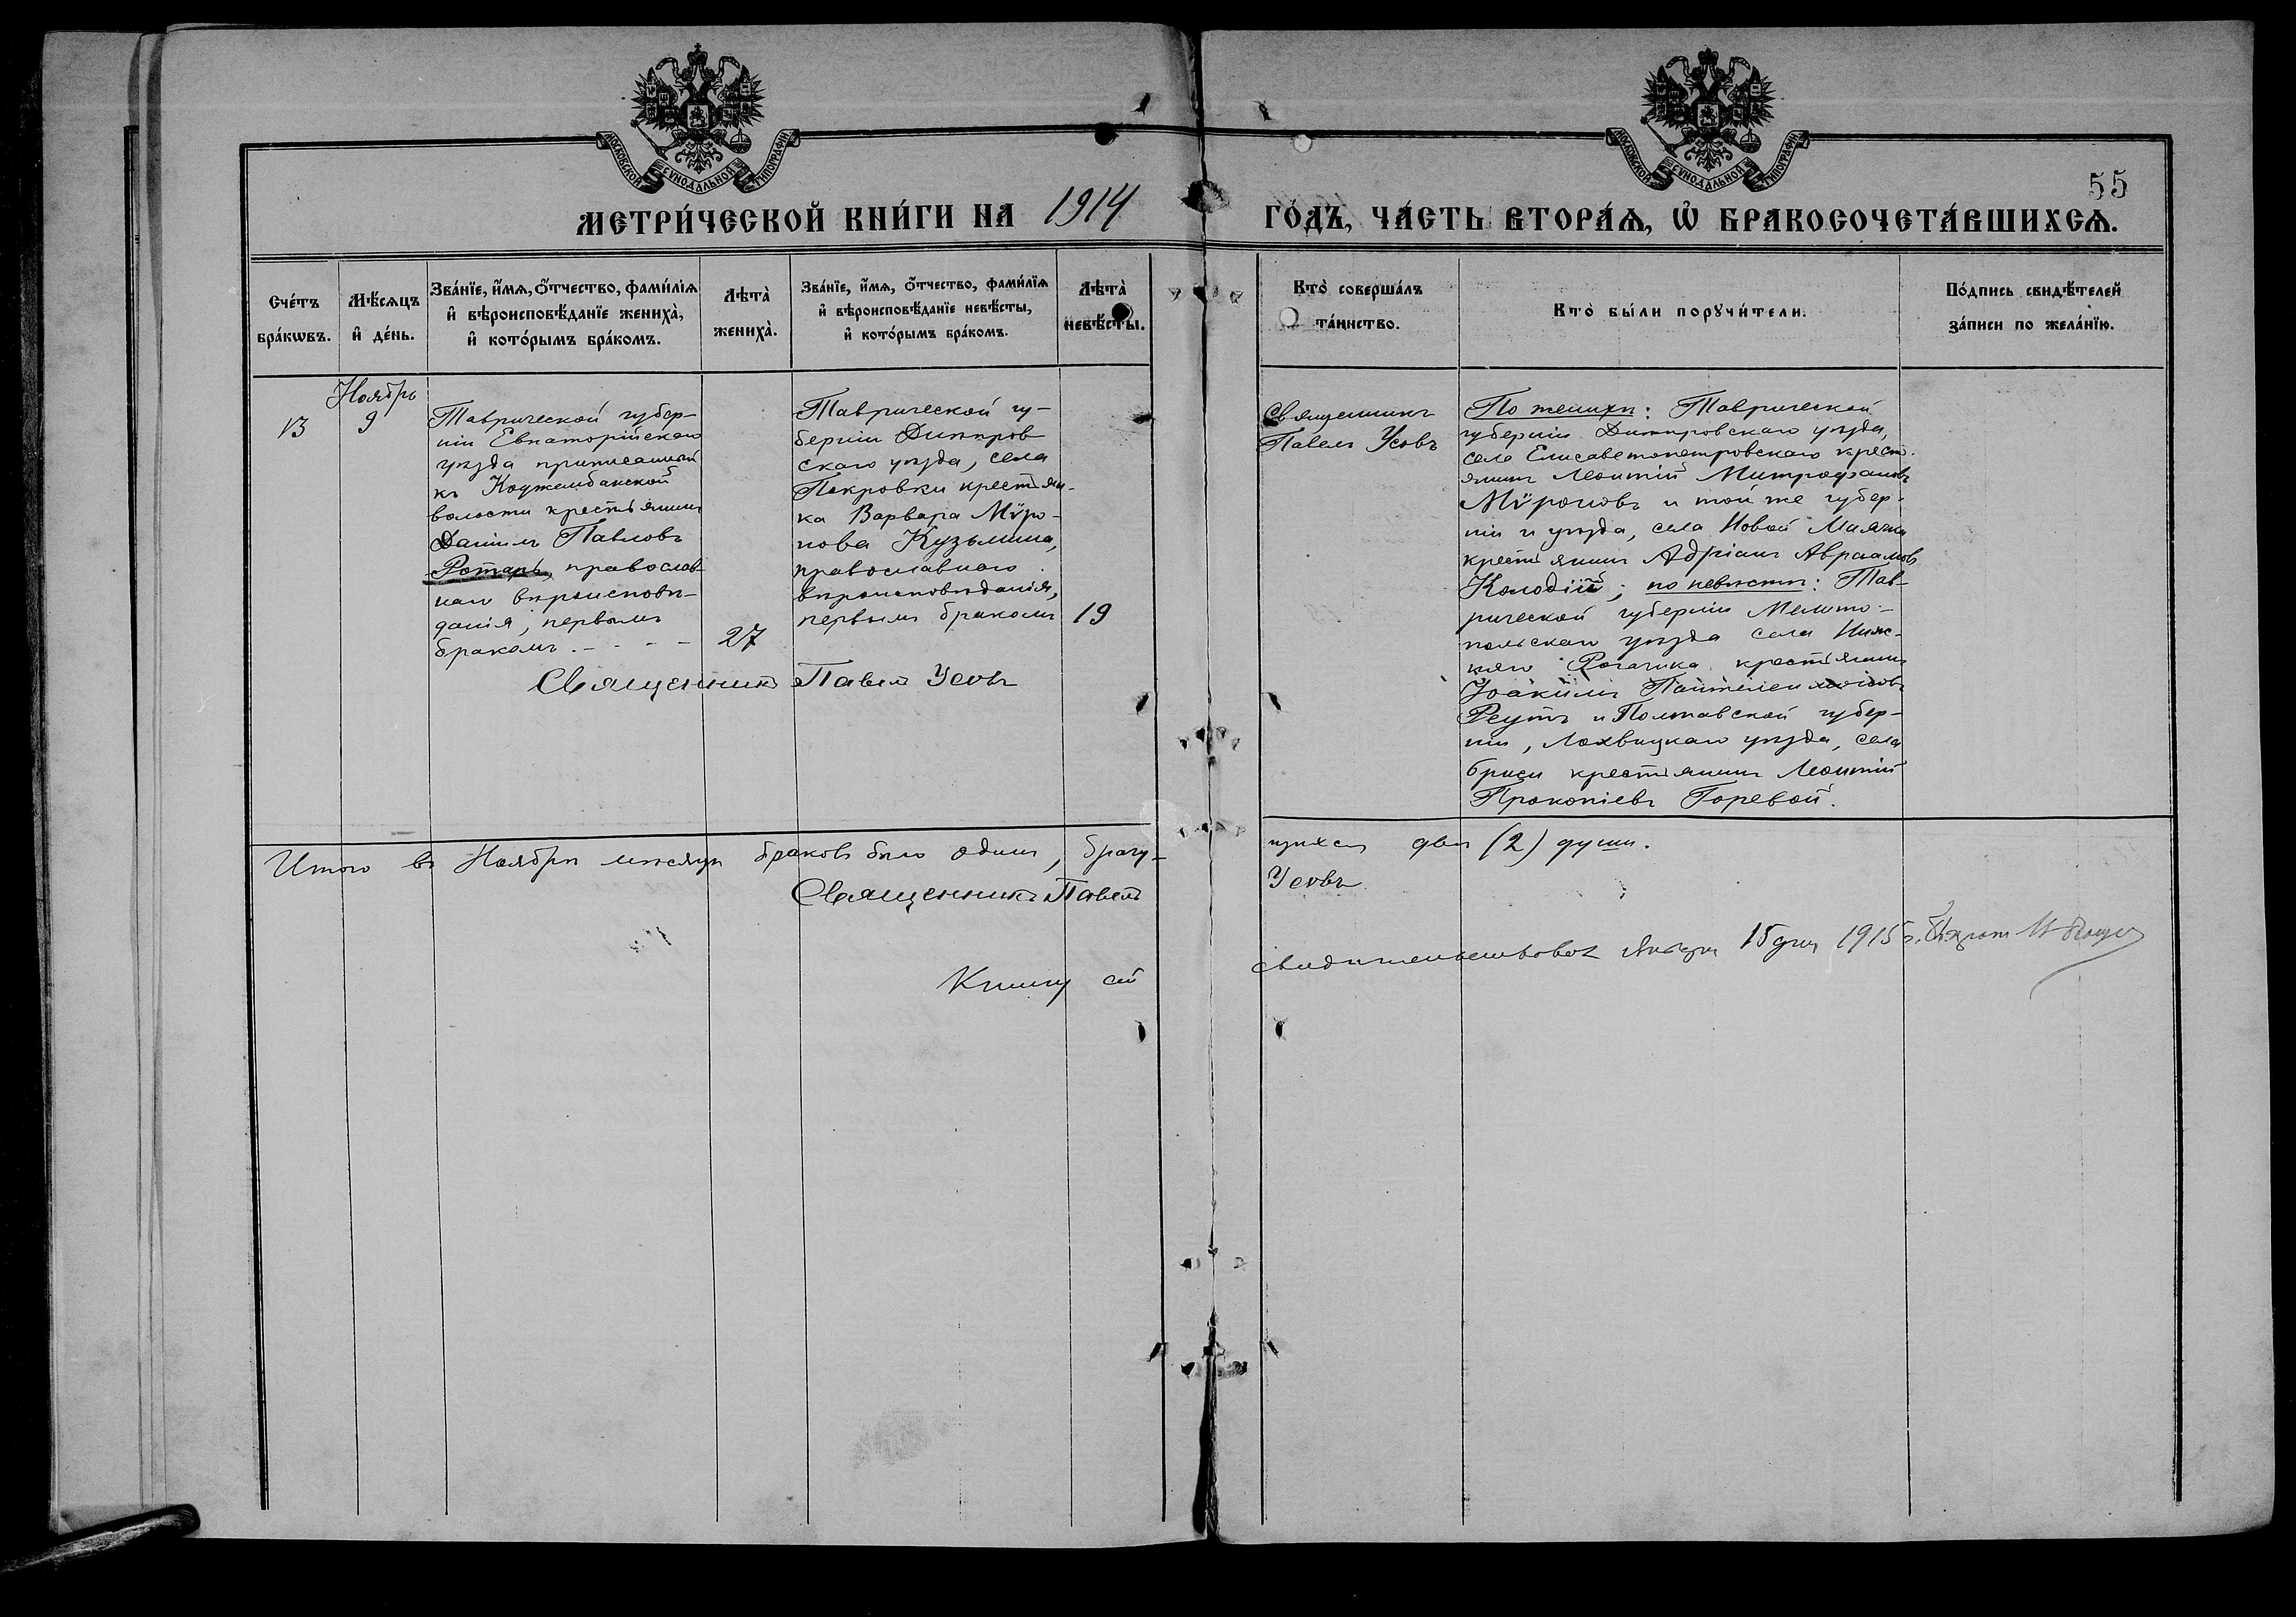 МОСКОВСКОЙ СѴНОДАЛЬНОЙ ТИПОГРАФІИ
МОСКОВСКОЙ СѴНОДАЛЬНОЙ ТИПОГРАФІИ
55
МЕТРИ́ЧЕСКОЙ КНИ́ГИ НА 1914 ГО́ДЪ, ЧА́СТЬ ВТОРА́Ѧ, Ѡ҆ БРАКОСОЧЕТА́ВШИХСѦ.
Сче́тъ
бра́кѡвъ.
Мѣ́сѧцъ
и҆ де́нь.
Зва́нїе, и҆́мѧ, ѻ҆́тчество, фами́лїѧ
и҆ вѣроисповѣ́данїе жениха̀,
и҆ кото́рымъ бра́комъ.
Лѣта̀
жениха̀.
Зва́нїе, и҆́мѧ, ѻ҆́тчество, фами́лїѧ
и҆ вѣроисповѣ́данїе невѣ́сты,
и҆ кото́рымъ бра́комъ.
Лѣта̀
невѣ́сты.
Кто̀ соверша́лъ
та́инство.
Кто̀ бы́ли порꙋчи́тели.
По́дпись свидѣ́телей
за́писи по жела́нїю.
13
Ноябрь
9
Таврической губер-
ніи Евпаторійскаго
уѣзда приписанный
къ Коджамбакской
волости крестьянинъ
Даніилъ Павловъ
Ротарь, православ-
наго вѣроисповѣ-
данія, первымъ
бракомъ. - - - -
27
Таврической гу-
берніи Днѣпров
скаго уѣзда, села
Покровки крестьян-
ка Варвара Мѵро-
нова Кузьмина,
православнаго
вѣроисповѣданія,
первымъ бракомъ
19
Священникъ Павелъ Усовъ
Священникъ
Павелъ Усовъ
По женихѣ: Таврической
губерніи Днѣпровскаго уѣзда,
села Елисаветопетровскаго крест-
янинъ Леонтій Митрофановъ
Мѵроновъ и той же губер-
ніи и уѣзда, села Новой Маячки
крестьянинъ Адріанъ Авраамовъ
Колодій; по невѣстѣ: Тав-
рической губерніи Мелито-
польскаго уѣзда села Ниж-
няго Рогачика крестьянинъ
Іоакимъ Пантелеимоновъ
Реутъ и Полтавской губер-
ніи, Лохвицкаго уѣзда, села
крестьянинъ Леонтій
Прокопіевъ Горевой.
Итого въ Ноябрѣ мѣсяцѣ браковъ было одинъ, брачу-
щихся двѣ (2) души.
Священникъ Павелъ
Усовъ
Книгу сію
свидѣтельствовалъ Января 15 дня 1915 г.